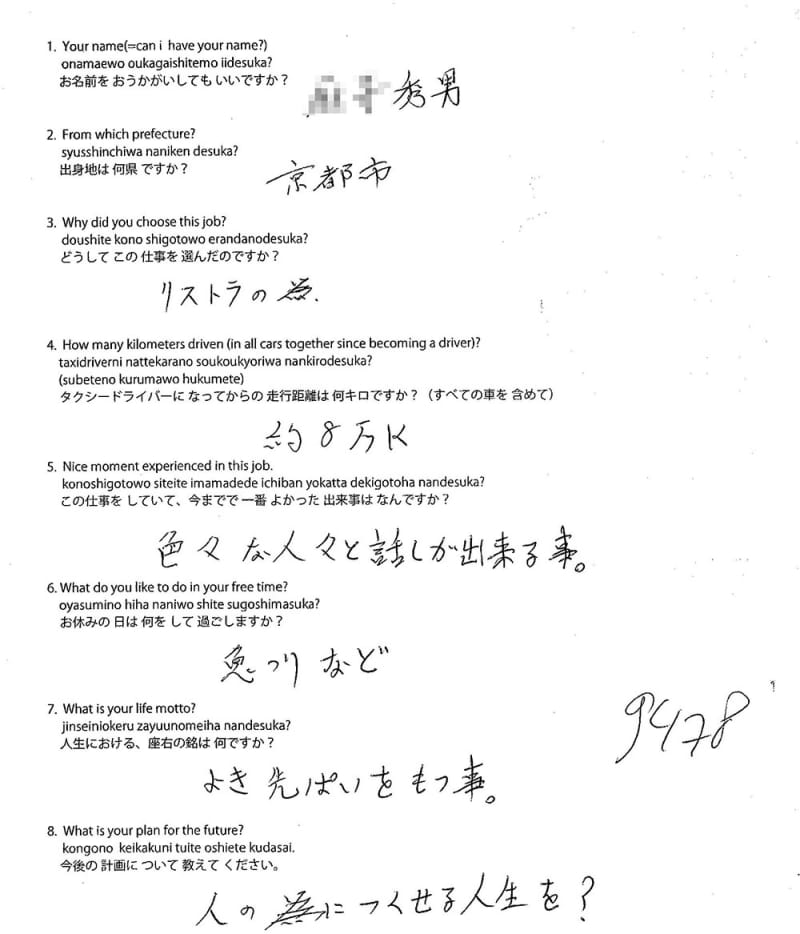 1. Your name(=can i have your name?)
onamaewo oukagaishitemo iidesuka?
お名前を おうかがいしても いいですか？
秀男
2. From which prefecture?
syusshinchiwa naniken desuka?
出身地は 何県 ですか？
京都市
3. Why did you choose this job?
doushite kono shigotowo erandanodesuka?
どうして この 仕事を 選んだのですか？
リストラの為.
4. How many kilometers driven (in all cars together since becoming a driver)?
taxidriverni nattekarano soukoukyoriwa nankirodesuka?
(subeteno kurumawo hukumete)
タクシードライバーに なってからの 走行距離は 何キロですか？（すべての車を 含めて）
約8万K
5. Nice moment experienced in this job.
konoshigotowo siteite imamadede ichiban yokatta dekigotoha nandesuka?
この仕事を していて、今までで 一番 よかった 出来事は なんですか？
色々な人々と話しが出来る事。
6. What do you like to do in your free time?
oyasumino hiha naniwo shite sugoshimasuka?
お休みの 日は 何を して 過ごしますか？
魚つりなど
7. What is your life motto?
jinseiniokeru zayuunomeiha nandesuka?
人生における、座右の銘は 何ですか？
9478
よき先ぱいをもつ事。
8. What is your plan for the future?
kongono keikakuni tuite oshiete kudasai.
今後の 計画に ついて 教えて ください。
人の為につくせる人生を?